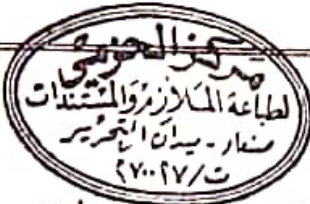 مركز الحريبي
لطباعة الملازم والمستندات
صنعاء - ميدان التحرير
ت/٢٧٠٠٢٧